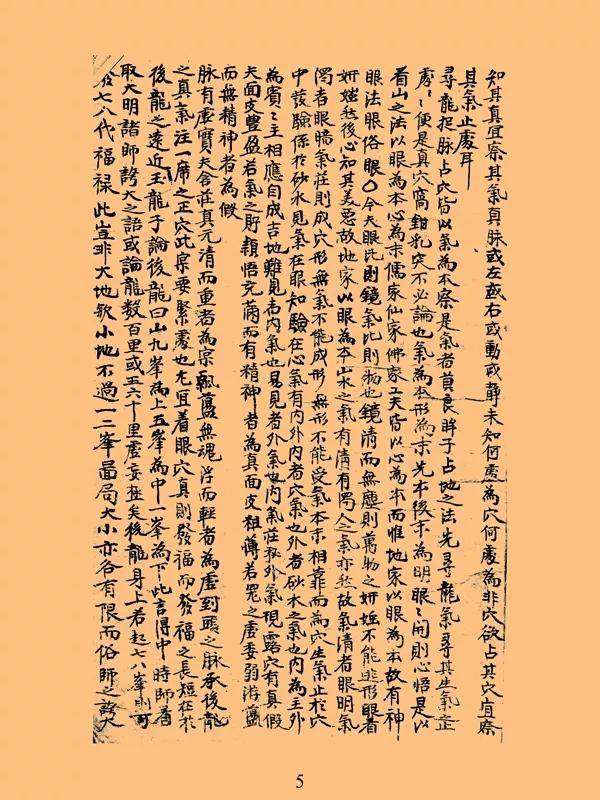 知其真宜察其氣真脉或左或右或動或静未知何處為穴何處為非穴欲占其穴宜察
其氣止處耳
尋龍捉脉占穴皆以氣為本察是氣者真良眸子占地之法先尋龍氣尋其生氣止
處〻便是真穴窩鉗乳突不必論也氣為本形為末先本後末為明眼〻開則心悟是以
看山之法以眼為本心為末儒家仙家佛家工夫皆以心為本而惟地家以眼為本故有神
眼法眼俗眼〇今夫眼比則鏡氣比則物也鏡清而無塵則萬物之妍媸不能逃形眼着
妍媸然後心知其美惡故地家以眼為本山水之氣有清有濁人之氣亦然故氣清者眼明氣
濁者眼暗氣莊則成穴形無氣不能成形無形不能受氣本末相靠而為穴生氣止於穴
中該驗係於砂水見氣在眼知驗在心氣有内外内者穴氣也外者砂水之氣也内為主外
為賓〻主相應自成吉地難見者内氣也易見者外氣也内氣莊於外氣現露穴有真假
夫面皮豊盈若氣之貯穎悟充滿而有精神者為真面皮粗慱若罷之虛委弱游蕩
而無精神者為假
脉有虛實夫含莊真元清而重者為宗飄蕩無魂浮而輕者為虛到頭之脉承後龍
之真氣注一席之正穴此宗要緊處也尤宜着眼穴真則發福而發福之長短在於
後龍之遠近玉龍子論後龍曰山九峯為上五峯為中一峯為下此言得中時師着
取大明諸師誇大之語或論龍數百里或五六十里虛妄極矣後龍身上若起七八峯則可
發七八代福禄此豈非大地歟小地不過一二峯局大小亦各有限而俗師之誇大